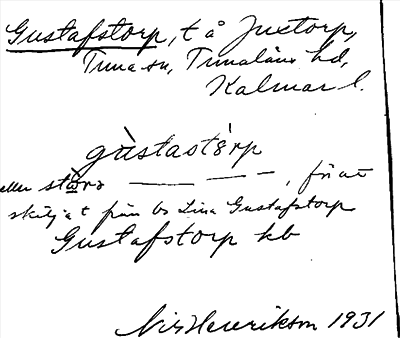 Gustafstorp, t å Juxtorp,
Tuna sn, Tunaläns hd,
Kalmar l.
gùstastòrp
eller stòra — — —, för att
skilja t från bs Lilla Gustafstorp
Gustafstorp kb
Nis Henrikson 1931